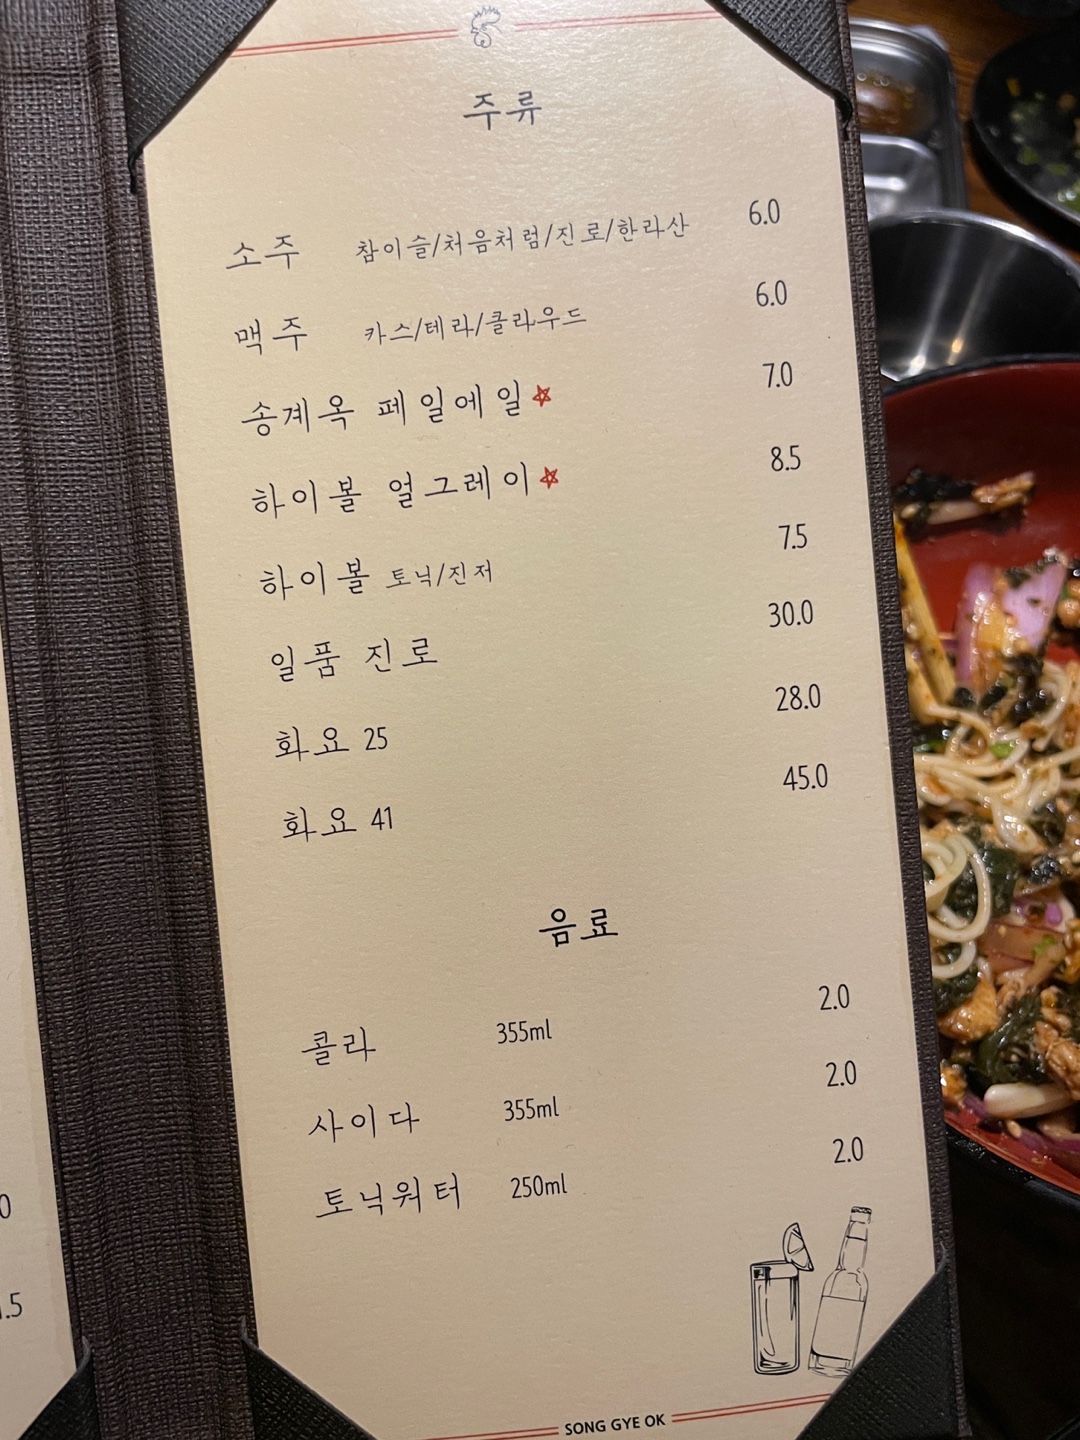 주류
소주 참이슬/처음처럼/진로/한라산 6.0
맥주 카스/테라/클라우드 6.0
송계옥 페일에일 7.0
하이볼 얼그레이 8.5
하이볼 토닉/진저 7.5
일품 진로 30.0
화요 25 28.0
화요 41 45.0
음료
콜라 355ml 2.0
사이다 355ml 2.0
토닉워터 250ml 2.0
SONG GYE OK